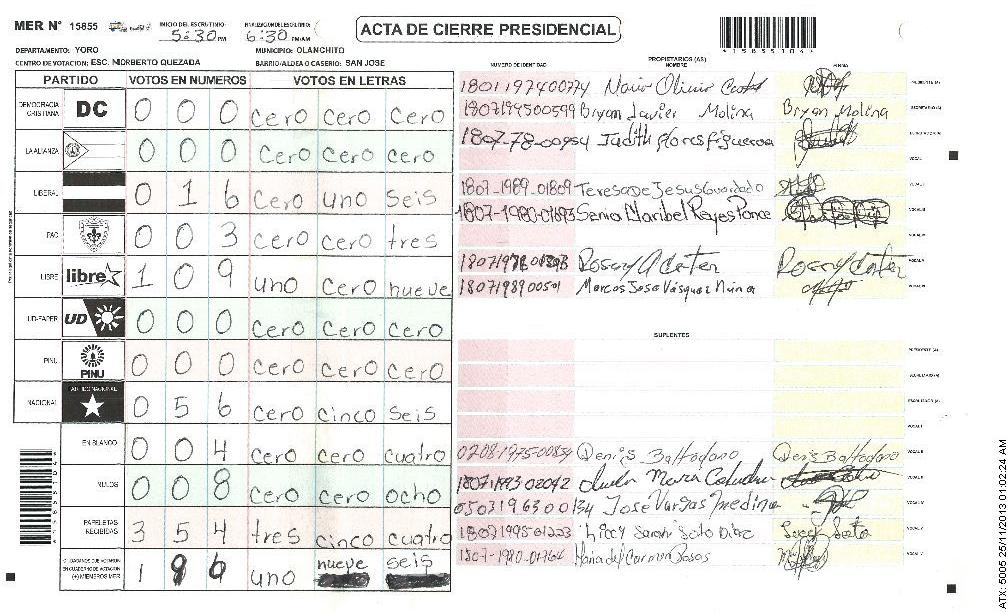 MER N° 15855 INICIO DEL ESCRUTINIO: 5:30 PM FINALIZACION ESCRUTINIO: 6:30 PM/AM
ACTA DE CIERRE PRESIDENCIAL
DEPARTAMENTO: YORO MUNICIPIO: OLANCHITO
CENTRO DE VOTACION: ESC. NIORBERTO QUEZADA BARRIO/ALDEA O CASERIO: SAN JOSE
PARTIDO VOTOS EN NUMEROS VOTOS EN LETRAS
DEMOCRACIA CRISTIANA DC 0 0 0 cero cero cero
LA ALIANZA 0 0 0 cero cero cero
LIBERAL 0 1 6 cero uno seis
PAC 0 0 3 cero cero tres
LIBRE libre 1 0 9 uno cero nueve
UD-FAPER UD 0 0 0 cero cero cero
PINU PINU 0 0 0 cero cero cero
NACIONAL PARTIDO NACIONAL 0 5 6 cero cinco seis
EN BLANCO 0 0 4 cero cero cuatro
NULOS 0 0 8 cero cero ocho
PAPELETAS RECIBIDAS 3 5 4 tres cinco cuatro
CIUDADANOS QUE VOTARON EN CUADERNO DE VOTACION (+) MIEMBROS MER 1 9 6 uno nueve seis
PROPIETARIOS (AS)
NUMERO DE IDENTIDAD NOMBRE FIRMA
1801197400774 Mario Olivio PRESIDENTE (A)
1807199500599 Bryan Javier Molina Bryan Molina SECRETARIO (A)
1807-78-00954 Judith Flores Figueroa
VOCAL I
1807-1989-01809 Teresa de Jesus Guardado VOCAL II
1807-1980-01693 Senia Maribel Reyes Ponce VOCAL III
VOCAL IV
Rossy
1807198900501 Marcos Jose Vásquez Núñez
SUPLENTES
PRESIDENTE (A)
SECRETARIO (A)
ESCRUTADOR (A)
VOCAL I
0208-1975-00854 Denis Baltodano Denis Baltodano VOCAL II
Maria VOCAL III
0503196300134 Jose Vargas Medina VOCAL IV
18071995-01223 Sarahi Soto VOCAL V
1807-1980-01764 Maria del Carmen
ATX: 5005 25/11/2013 01:02:24 AM